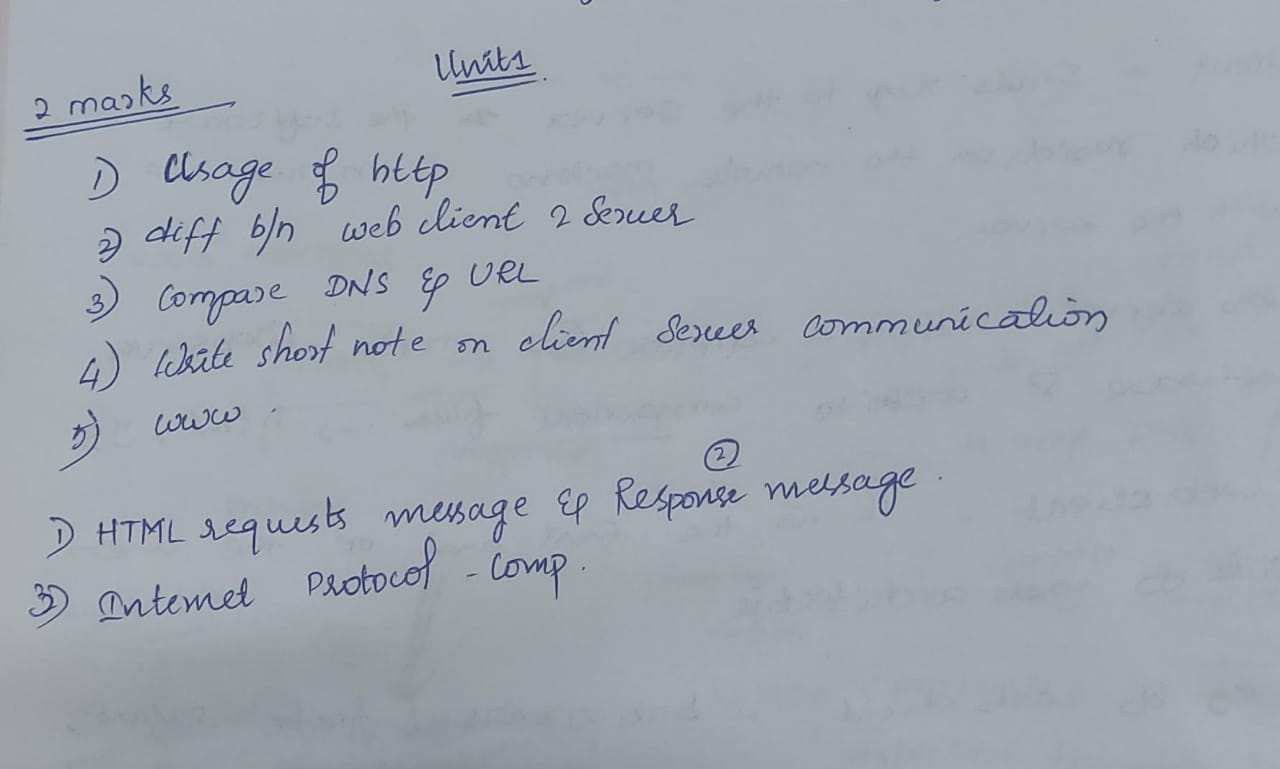 Unit 1
2 marks
1) Usage of http
2) diff b/n web client 2 Server
3) Compare DNS & URL
4) Write short note on client Server communication
5) www.
1) HTML requests message & Response message.
②
3) Internet Protocol - Comp.